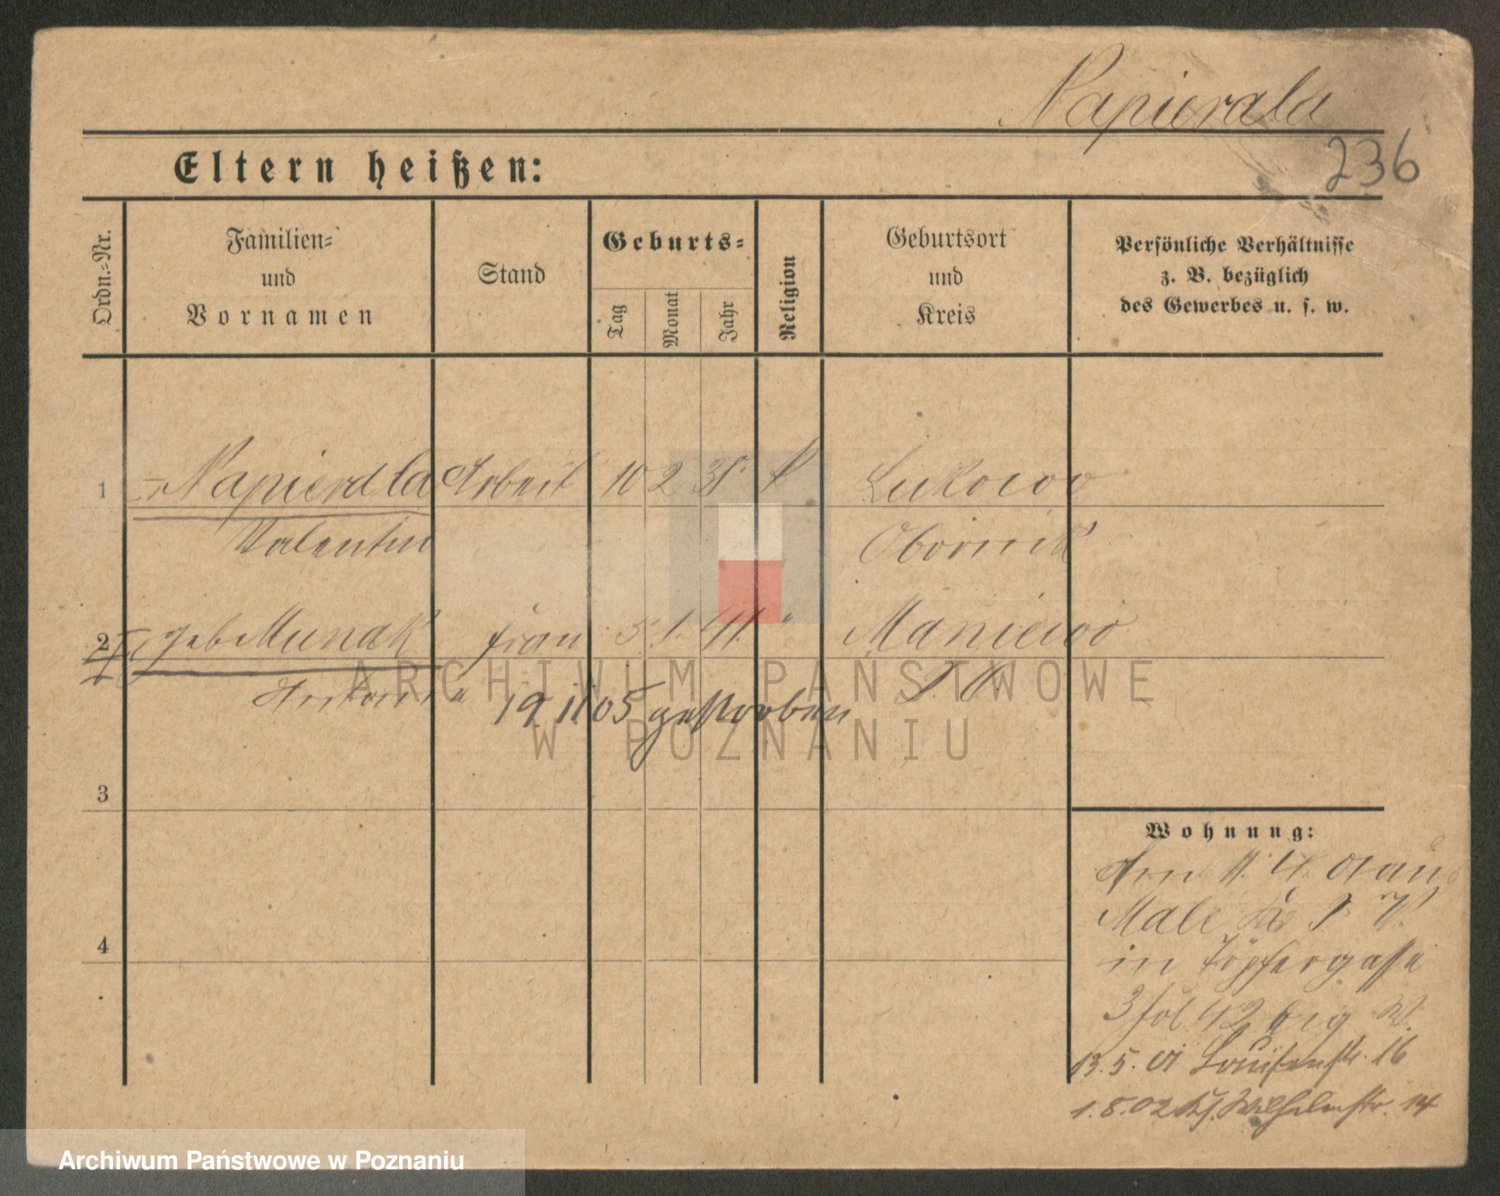 Napierala
236
Eltern heißen:
Ordn.-Nr.
Familien-
und
Vornamen
Stand
Geburts-
Tag
Monat
Jahr
Religion
Geburtsort
und
Kreis
Persönliche Verhältnisse
z. B. bezüglich
des Gewerbes u. s. w.
1 Napierala Arbeit 10 2 38 k Lukowo
Valentin Obornik
2 geb Munak frau 5. 1. 41. " Maniewo
Antonie 19 11 05 gestorben
ARCHIWUM PAŃSTWOWE
W POZNANIU
3
Wohnung:
Am 11. 4. 01 aus
Male
in Töpfergasse
4
3 fol 42 big W.
13. 5. 01 Louisenstr. 16
1. 8. 02 Wilhelmstr. 14
Archiwum Państwowe w Poznaniu